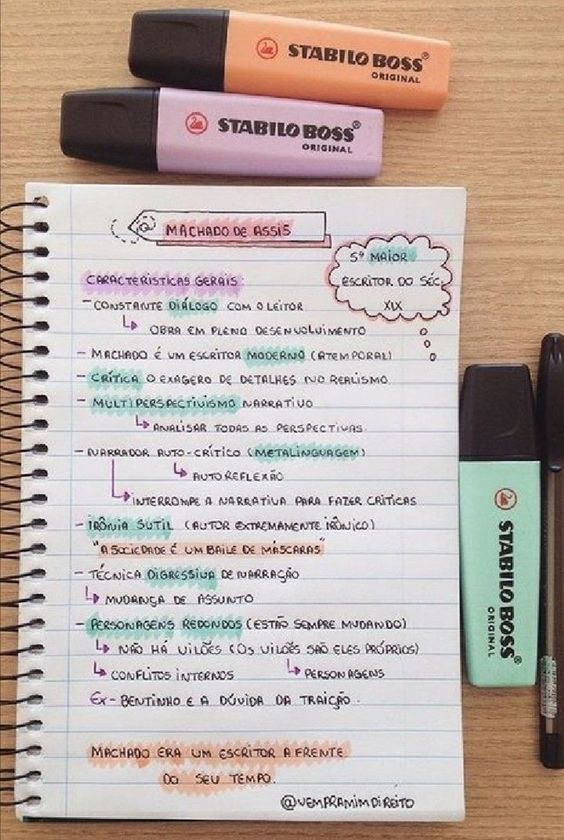 STABILO BOSS®
ORIGINAL
STABILO BOSS®
ORIGINAL
@ MACHADO DE ASSIS
5º MAIOR
ESCRITOR DO SÉC.
XIX
CARACTERÍSTICAS GERAIS
- CONSTANTE DIÁLOGO COM O LEITOR
OBRA EM PLENO DESENVOLVIMENTO
- MACHADO É UM ESCRITOR MODERNO (ATEMPORAL)
- CRÍTICA O EXAGERO DE DETALHES NO REALISMO
- MULTIPERSPECTIVISMO NARRATIVO
ANALISAR TODAS AS PERSPECTIVAS.
- NARRADOR AUTO-CRÍTICO (METALINGUAGEM)
AUTO REFLEXÃO
INTERROMPE A NARRATIVA PARA FAZER CRÍTICAS
- IRÔNIA SUTIL (AUTOR EXTREMAMENTE IRÔNICO)
"A SOCIEDADE É UM BAILE DE MÁSCARAS"
- TÉCNICA DIGRESSIVA DE NARRAÇÃO
MUDANÇA DE ASSUNTO
- PERSONAGENS REDONDOS (ESTÃO SEMPRE MUDANDO)
NÃO HÁ VILÕES (OS VILÕES SÃO ELES PRÓPRIOS)
CONFLITOS INTERNOS PERSONAGENS
Ex- BENTINHO E A DÚVIDA DA TRAIÇÃO.
MACHADO ERA UM ESCRITOR A FRENTE
DO SEU TEMPO.
@VEMPRAMIMDIREITO
STABILO BOSS®
ORIGINAL